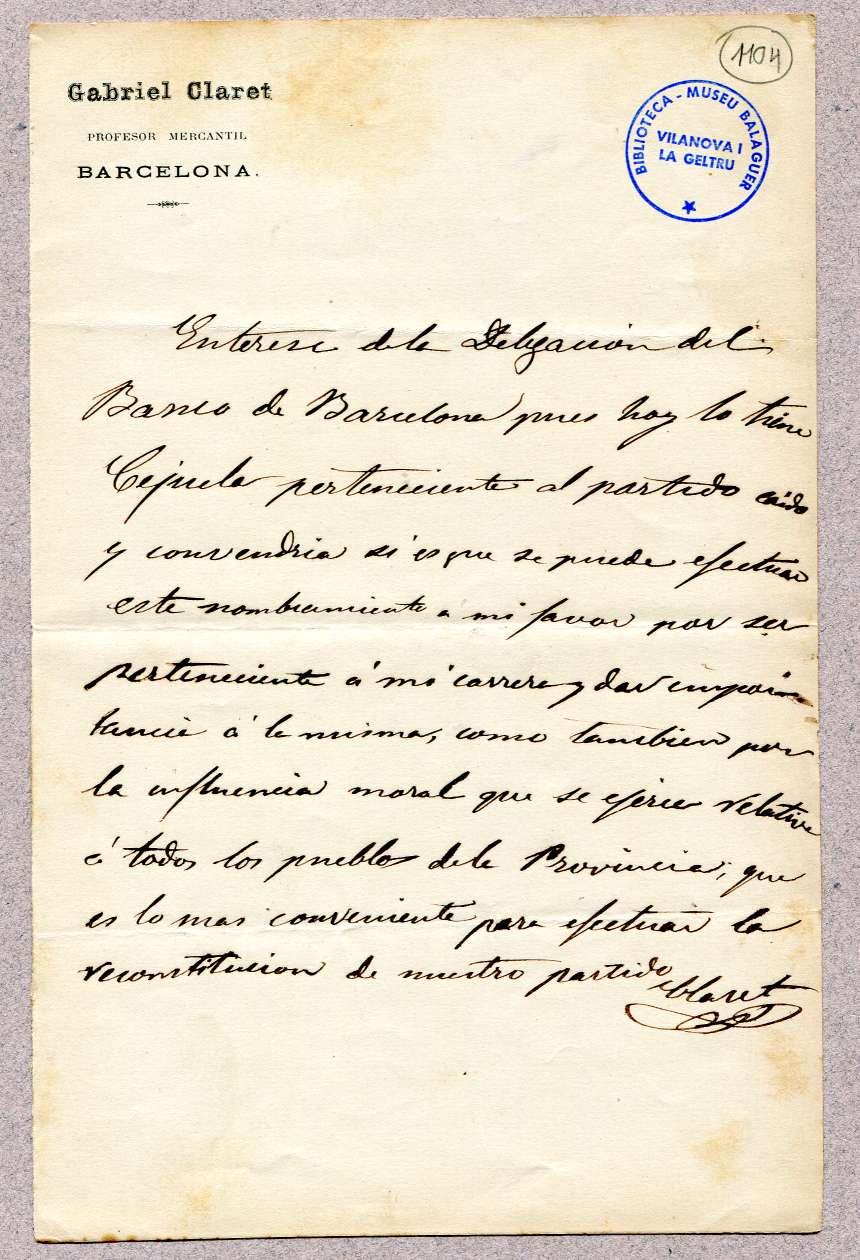 1104
Gabriel Claret
PROFESOR MERCANTIL
BARCELONA.
BIBLIOTECA - MUSEU BALAGUER
VILANOVA I
LA GELTRU
Enterese de la Delegación del
Banco de Barcelona pues hoy lo tiene
Cejuela perteneciente al partido caido
y convendria si es que se puede efectuar
este nombramiento a mi favor por ser
perteneciente á mi carrera y dar impor
tancia á la misma, como tambien por
la influencia moral que se ejerce relativa
á todos los pueblos de la Provincia, que
es lo mas conveniente para efectuar la
reconstitucion de nuestro partido
Claret